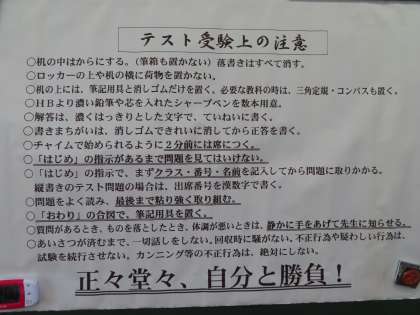 テスト受験上の注意
○机の中はからにする。（筆箱も置かない）落書きはすべて消す。
○ロッカーの上や机の横に荷物を置かない。
○机の上には、筆記用具と消しゴムだけを置く。必要な教科の時は、三角定規・コンパスも置く。
○ＨＢより濃い鉛筆や芯を入れたシャープペンを数本用意。
○解答は、濃くはっきりとした文字で、ていねいに書く。
○書きまちがいは、消しゴムできれいに消してから正答を書く。
○チャイムで始められるように２分前には席につく。
○「はじめ」の指示があるまで問題を見てはいけない。
○「はじめ」の指示で、まずクラス・番号・名前を記入してから問題に取りかかる。
縦書きのテスト問題の場合は、出席番号を漢数字で書く。
○問題をよく読み、最後まで粘り強く取り組む。
○「おわり」の合図で、筆記用具を置く。
○質問があるとき、ものを落としたとき、体調が悪いときは、静かに手をあげて先生に知らせる。
○あいさつが済むまで、一切話をしない。回収時に騒がない。不正行為や疑わしい行為は、
試験を続行させない。カンニング等の不正行為は、絶対にしない。
正々堂々、自分と勝負！